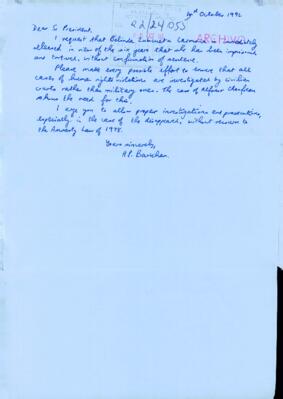 October 1992
92/24053
ARCHIVO
Dear Sr President,
I request that Belinda is immediately
released in view of the six years that she has been imprisoned
and tortured, without confirmation of sentence.
Please make every possible effort to ensure that all
cases of human rights violations are investigated by civilian
courts rather than military ones. The case of
shows the need for this.
I urge you to allow proper investigations and prosecutions,
especially in the case of the disappeared, without recourse to
the Amnesty Law of 1978.
Yours sincerely,